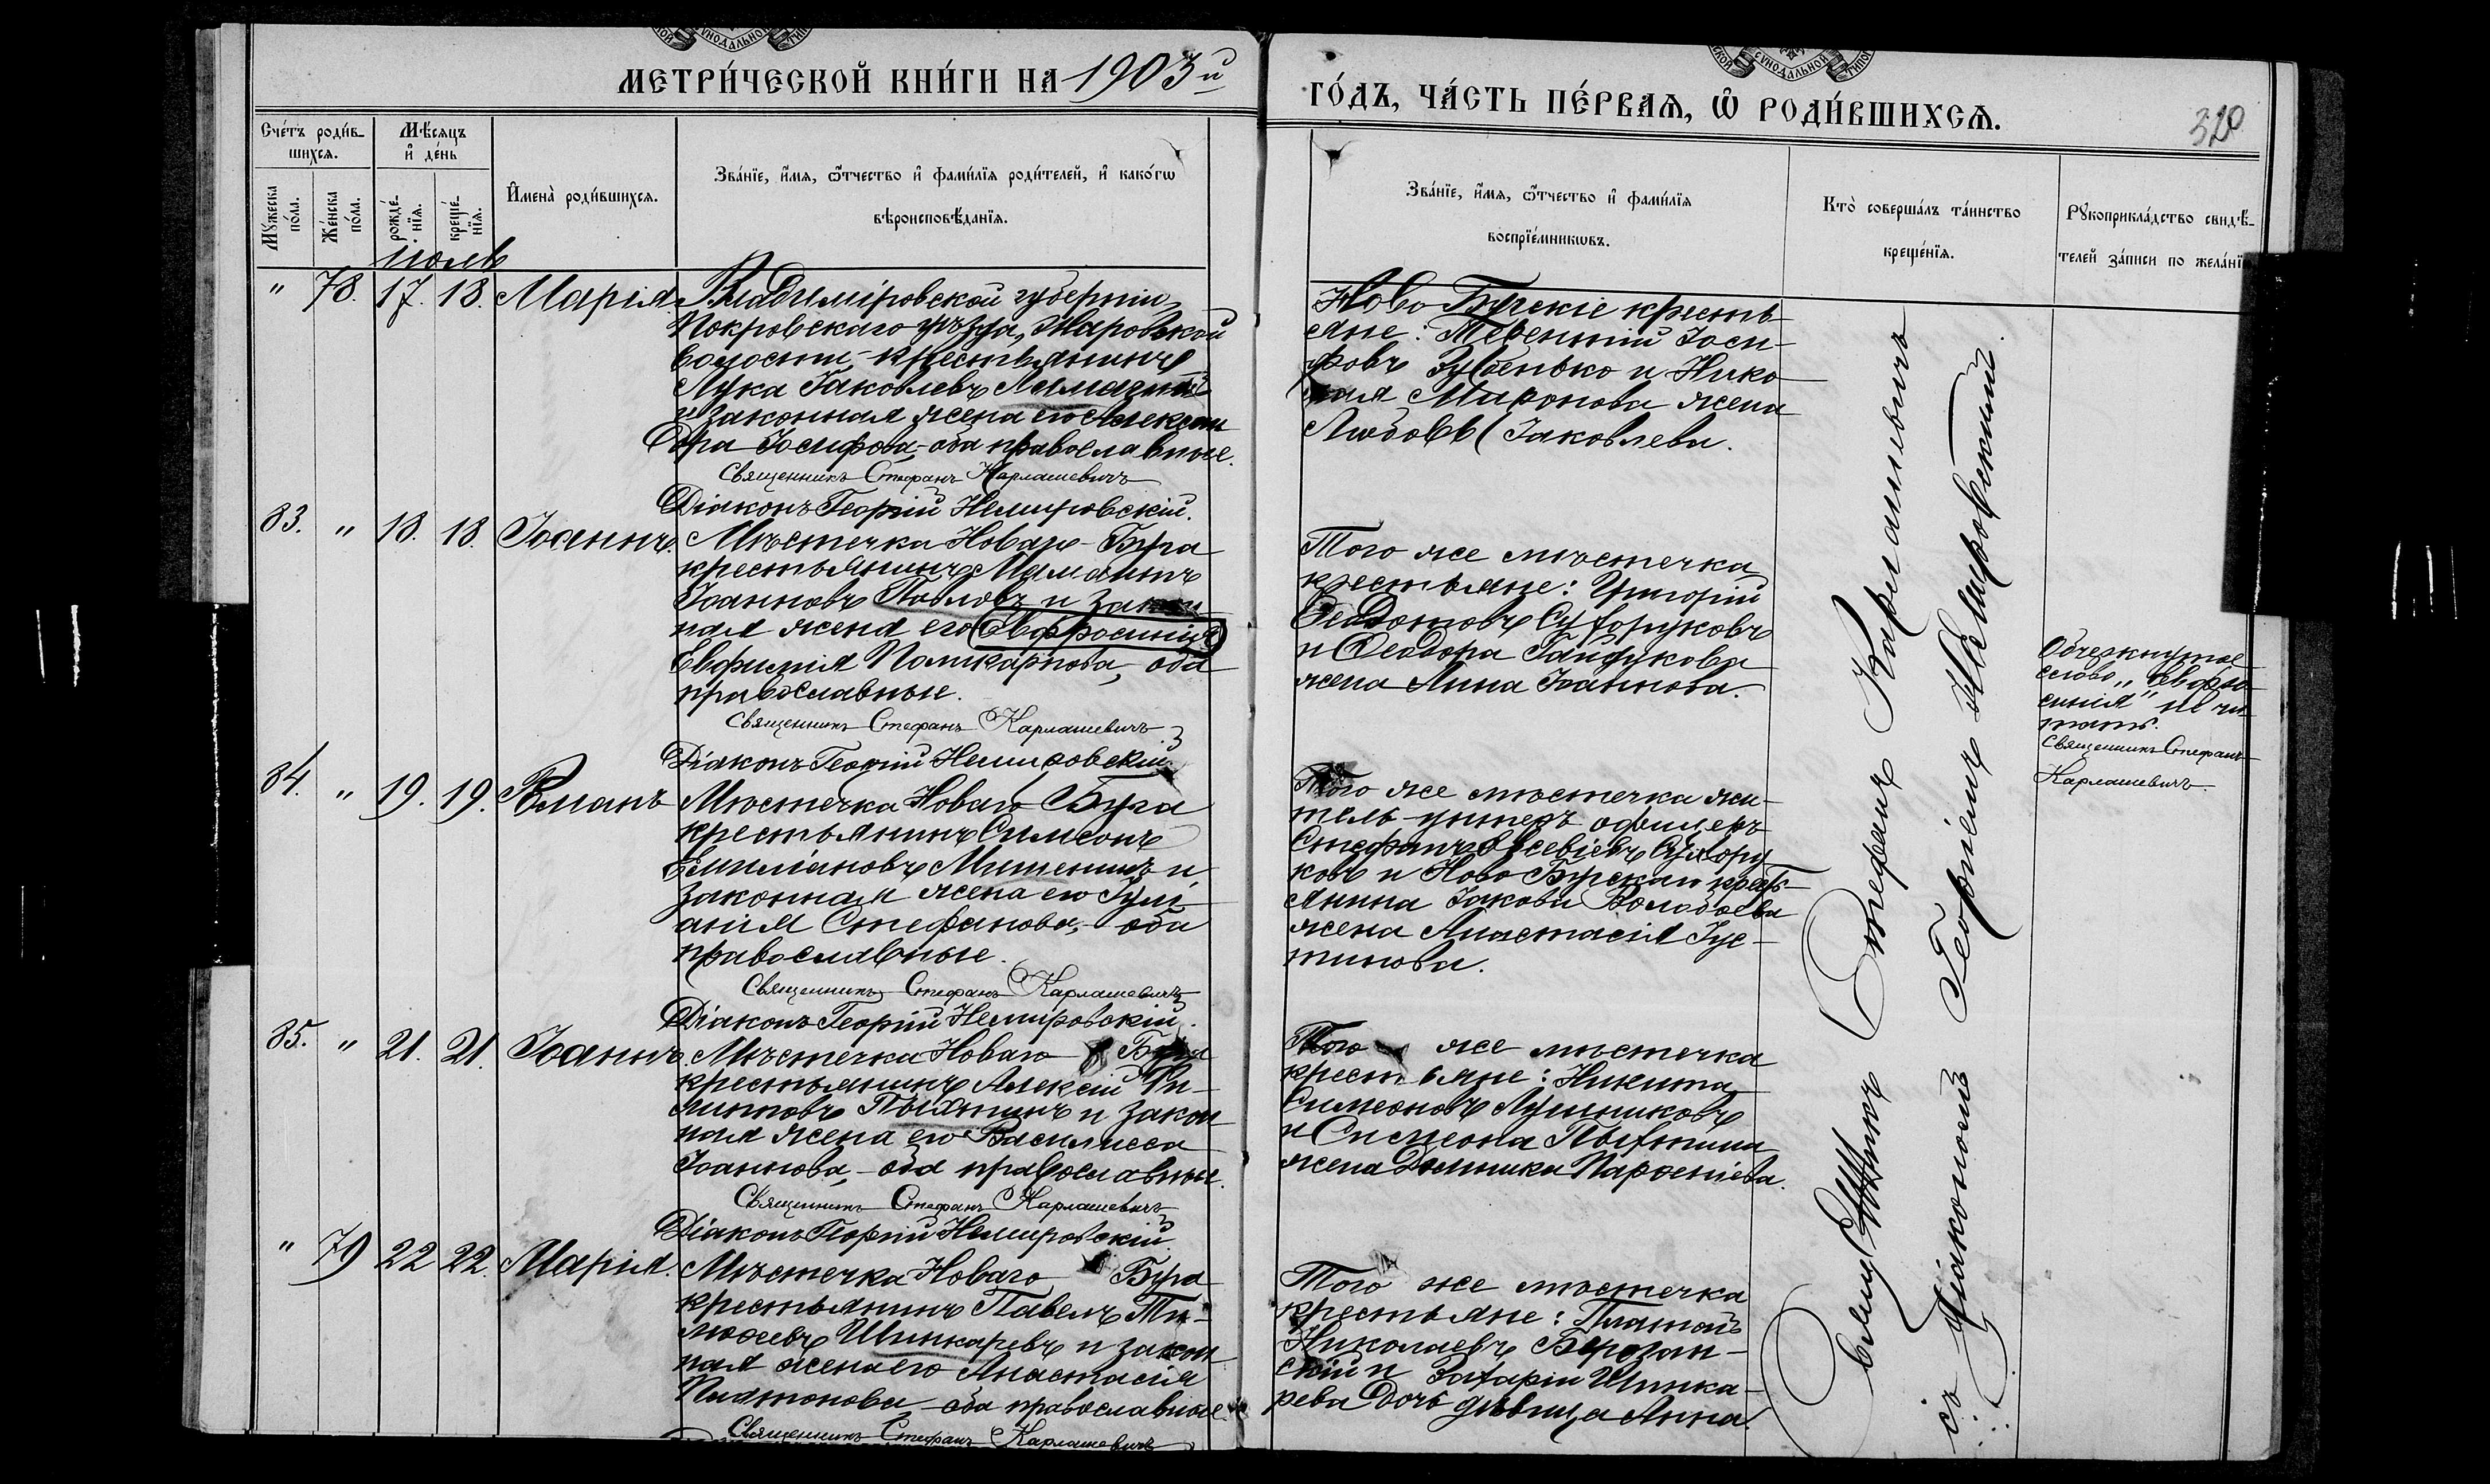 МЕТРИ́ЧЕСКОЙ КНИ́ГИ НА 1903й
ГО́ДЪ, ЧА́СТЬ ПЕ́РВАЯ, Ѿ РОДИ́ВШИХСЯ.
320
Сче́тъ роди́в-
шихся.
Мѣ́сяцъ
и҆ де́нь
Мꙋ́жеска
по́ла.
Же́нска
по́ла.
рожде́-
нїя.
креще́-
нїя.
И҆мена̀ роди́вшихся.
Зва́нїе, и҆́мя, ѻ҆́тчество и҆ фами́лїя роди́телей, и҆ како́гѡ
вѣроисповѣ́данїя.
Зва́нїе, и҆́мя, ѻ҆́тчество и҆ фами́лїя
воспрїе́мникѡвъ.
Кто̀ соверша́лъ та́инство
креще́нїя.
Рꙋкоприкла́дство свидѣ́-
телей за́писи по жела́нїю
іюль
" 78. 17. 18. Марія.
Владимїровской губерніи,
Покровскаго уѣзда, Жаровской
волости крестьянинъ
Лука Іаковлевъ
и законная жена его Алексан
дра Іосифова, оба православные.
Священникъ Стефанъ Карлашевичъ
Діаконъ Георгій Немировскій.
Ново-Бугскіе кресть-
яне: Терентій Іоси-
фовъ Зубенько и Нико-
лая Миронова жена
Любовь Іаковлева.
83. " 18. 18. Іоаннъ.
Мѣстечка Новаго-Буга
крестьянинъ
Іоанновъ Павловъ и закон
ная жена его Евфросинія
Евфимія Поликарпова, оба
православные.
Священникъ Стефанъ Карлашевичъ
Діаконъ Георгій Немировскій
Того же мѣстечка
крестьяне: Григорій
Феодотовъ Сухоруковъ
и Феодора Гайдукова
жена Анна Іоаннова.
Обчеркнутое
слово „Евфро-
синія" не чи-
тать.
Священникъ Стефанъ
Карлашевичъ.
84. " 19. 19. Романъ
Мѣстечка Новаго Буга
крестьянинъ Симеонъ
Емиліановъ Мишенинъ и
законная жена его Іулі-
анія Стефанова, оба
православные.
Священникъ Стефанъ Карлашевичъ
Діаконъ Георгій Немировскій.
Того же мѣстечка жи-
тель унтеръ офицеръ
Стефанъ Евсевіевъ Сухору
ковъ и Ново Бугскаго кресть-
янина Іакова Волобоева
жена Анастасія Іус-
тинова.
85. " 21. 21. Іоаннъ.
Мѣстечка Новаго Буга
крестьянинъ Алексій Фи-
липповъ Пыхтинъ и закон
ная жена его Василисса
Іоаннова, оба православные.
Священникъ Стефанъ Карлашевичъ
Діаконъ Георгій Немировскій.
Того же мѣстечка
крестьяне: Никита
Симеоновъ Лушниковъ
и Симеона Пыхтина
жена Домника Парѳеніева.
" 79 22 22. Марія.
Мѣстечка Новаго Буга
крестьянинъ Павелъ Ти-
моѳеевъ Шинкаревъ и закон
ная жена его Анастасія
Платонова оба православные.
Священникъ Стефанъ Карлашевичъ
Того же мѣстечка
крестьяне: Платонъ
Николаевъ Березан-
скій и Захаріи Шинка-
рева дочь дѣвица Анна.
Священникъ Стефанъ Карлашевичъ
съ діакономъ Георгіемъ Немировскимъ.